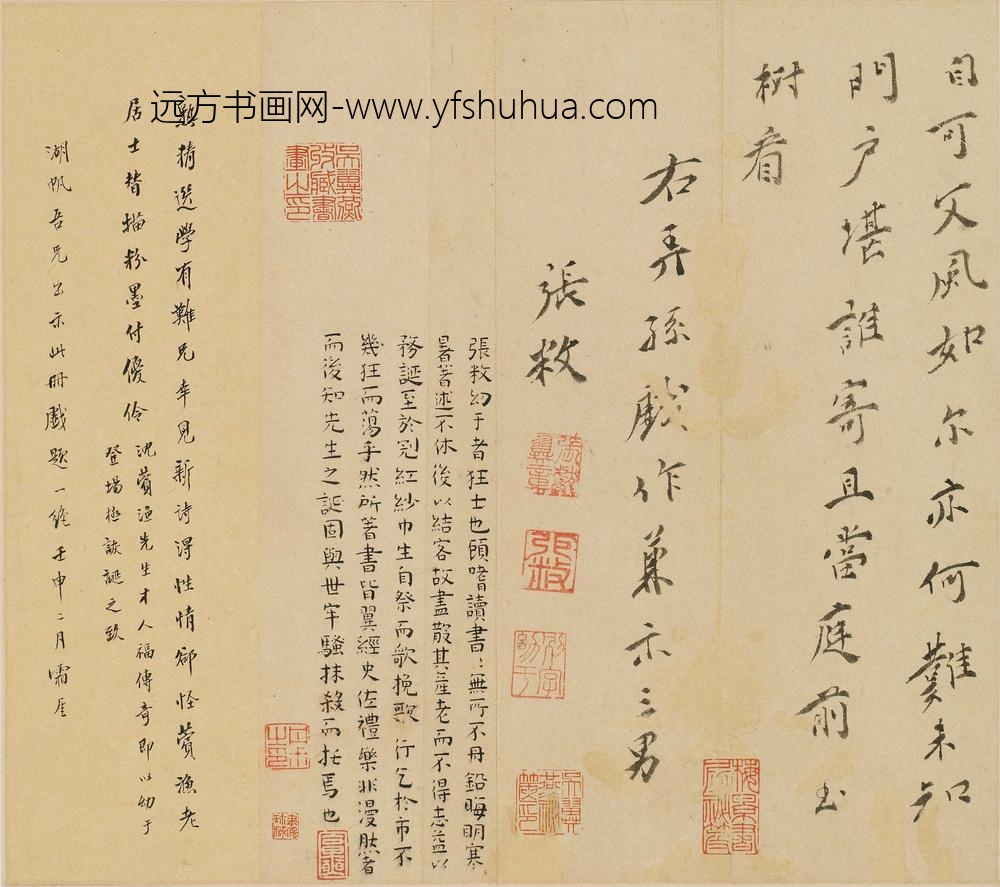 自可父風如尔亦何難未知
門户堪誰寄且當庭前玉
樹看
右弄孫戲作兼示三男
張敉
張敉幼于者狂士也頗嗜讀書書無所不丹鉛晦明寒
暑著述不休後以結客故盡散其產老而不得志益以
務誕至於冠紅紗巾生自祭而歌挽歌行乞於市不
幾狂而蕩乎然所著書皆翼經史佐禮樂非漫肰者
而後知先生之誕固與世牢騷抹殺而托焉也
精選學有難兄幸見新詩淂性情卻怪薲漁老
居士替描粉墨付優伶
沈薲漁先生才人福傳奇即以幼于
登場極詼誕之致
湖帆吾兄出示此冊戲題一絶壬申二月霜厓
远方书画网-www.yfshuhua.com
吳翼燕收藏書畫之印
張敉